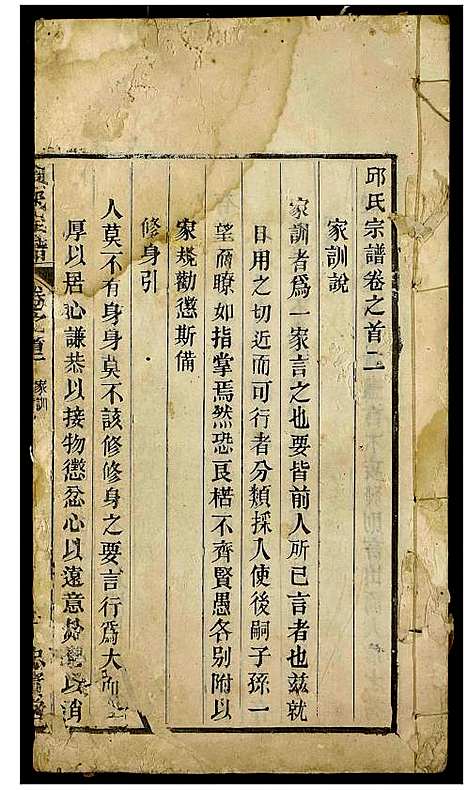 邱氏宗譜卷之首二
家訓說
家訓者爲一家言之也要皆前人所已言者也茲就
日用之切近而可行者分類採入使後嗣子孫一
望而瞭如指掌焉然恐良楛不齊賢愚各別附以
家規勸懲斯備
修身引
人莫不有身身莫不該修修身之要言行爲大而
厚以居心謙恭以接物懲忿心以遠意以消
卷之首二 家訓